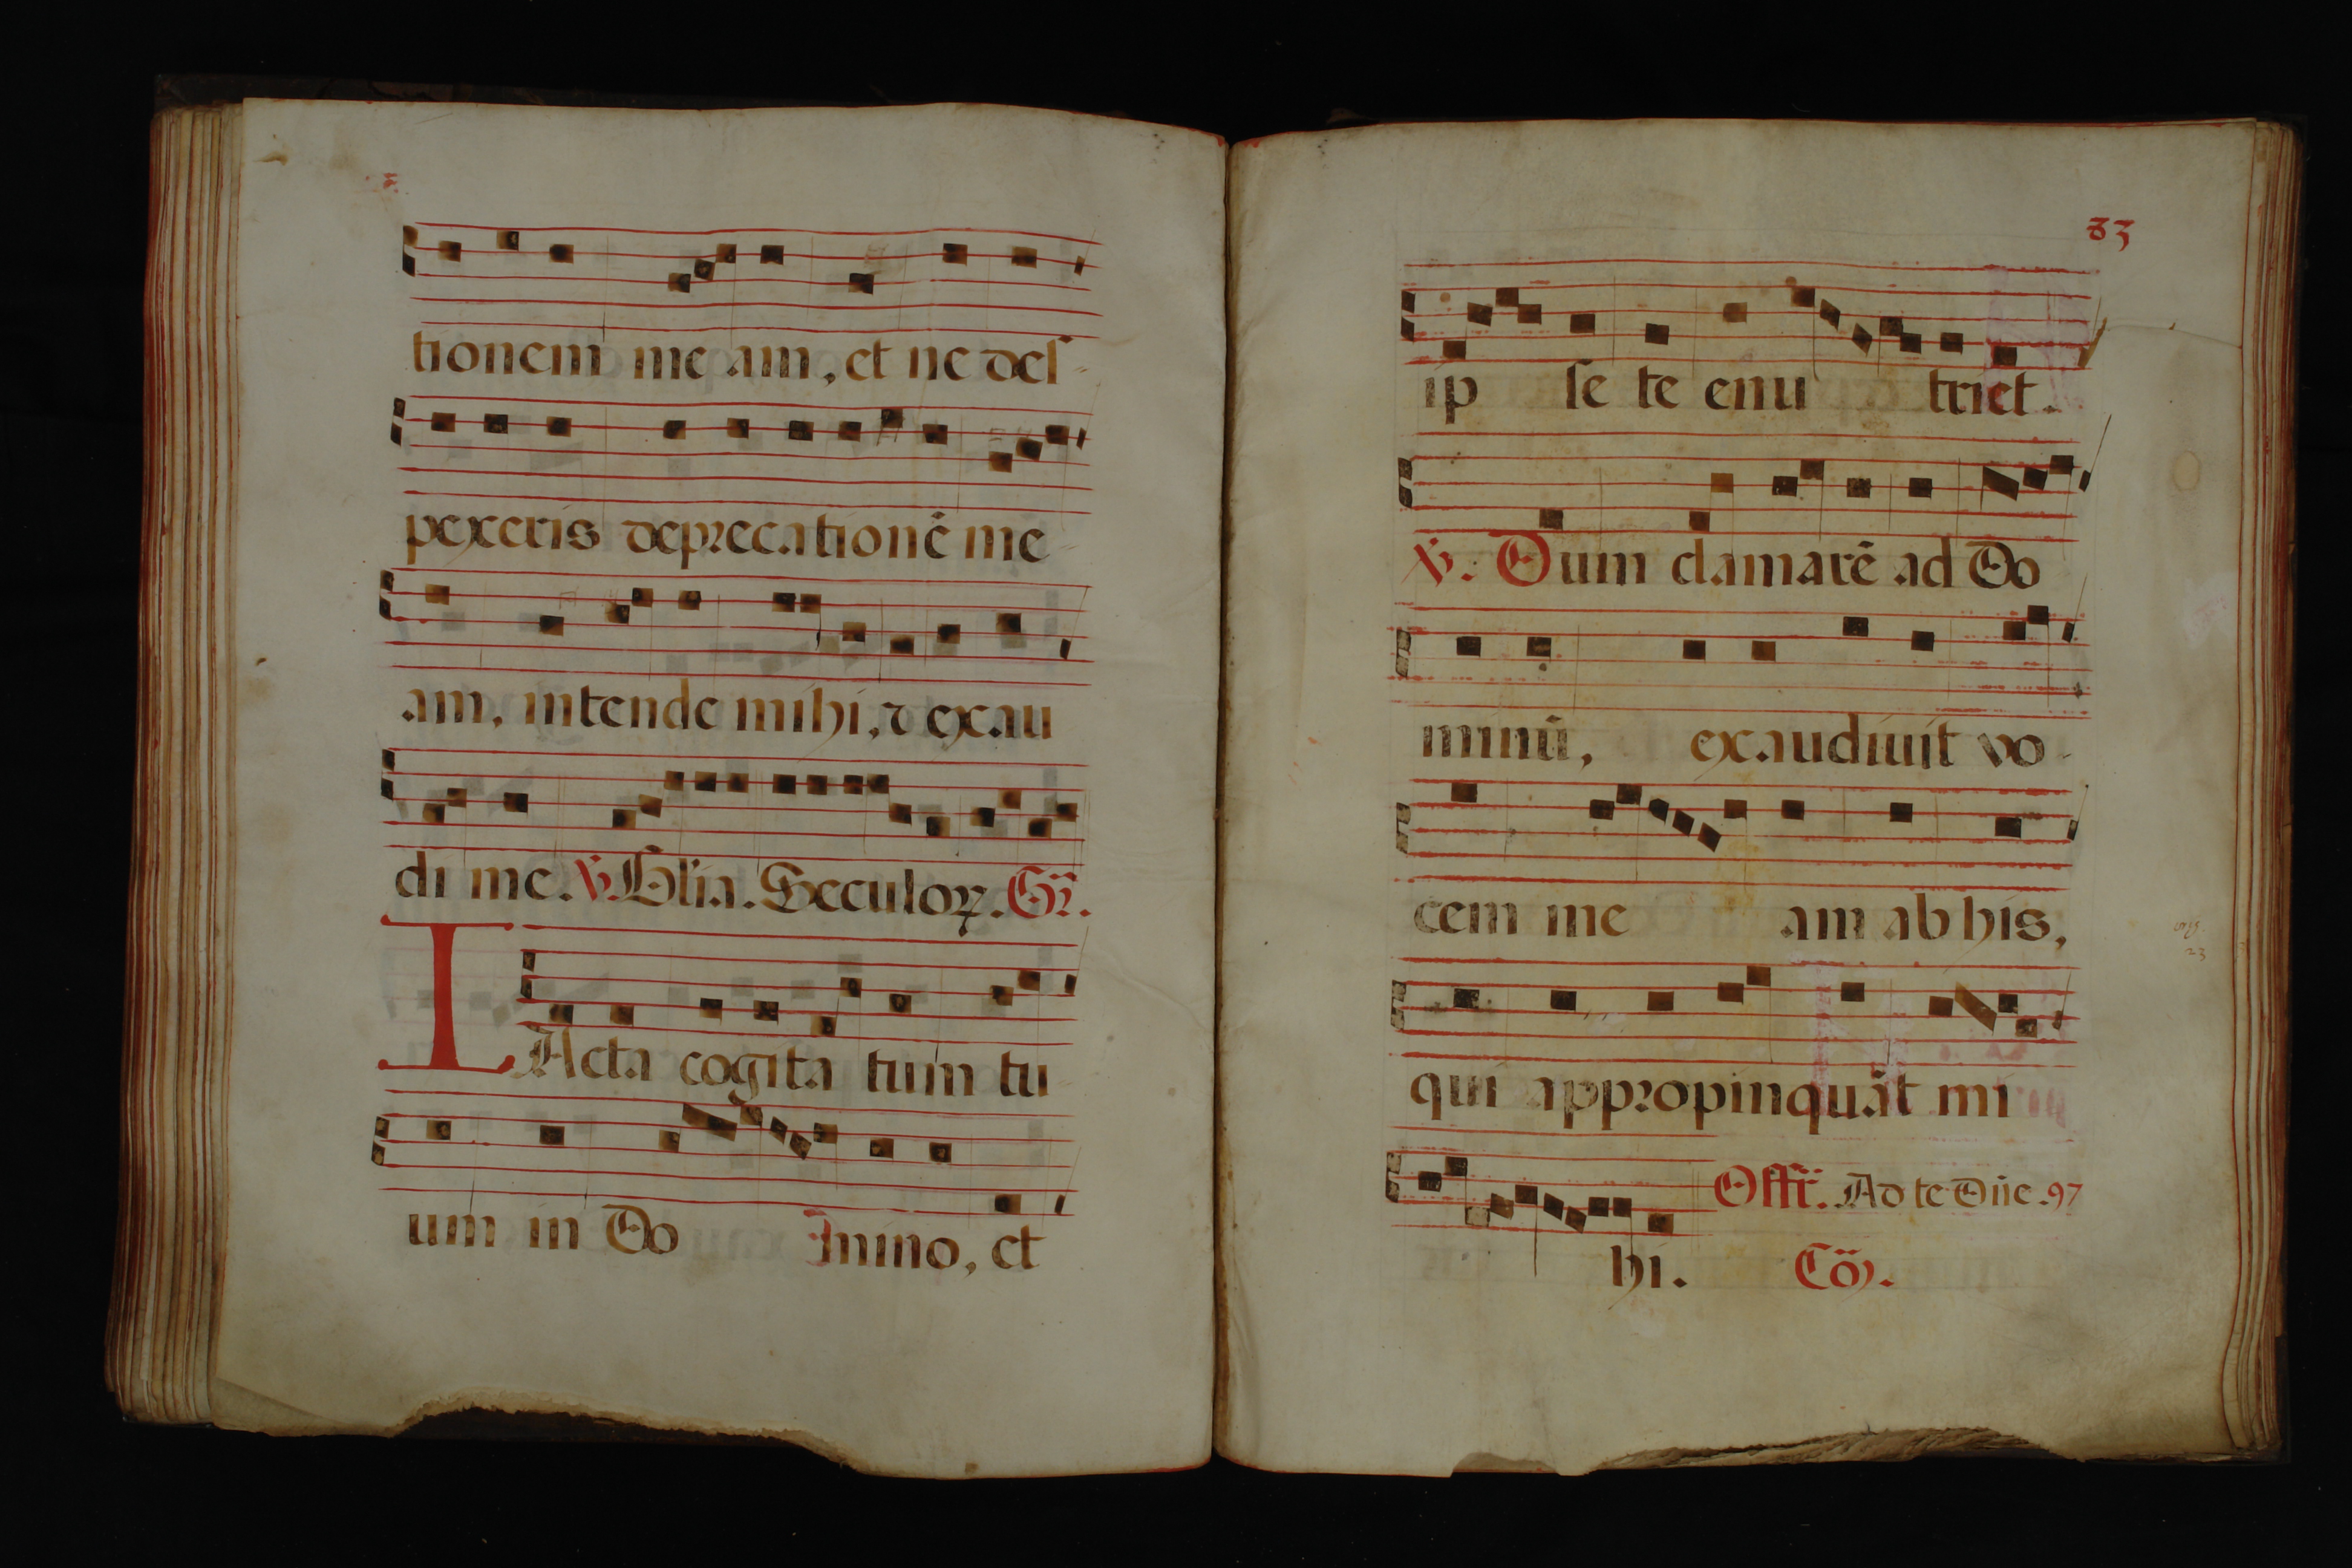 tionem me am, et ne des
pexeris deprecationē me
am, intende mihi, ⁊ exau
di me. ℣. Glīa. Seculoꝝ. Gr̄.
IActa cogita tum tu
um in Do mino, et
83
ip se te enu triet.
℣. Dum clamarē ad Do
minū, exaudiuit vo-
cem me am ab his,
qui appropinquāt mi
Offr̄. Ad te Dn̄e. 97
hi. Cō.